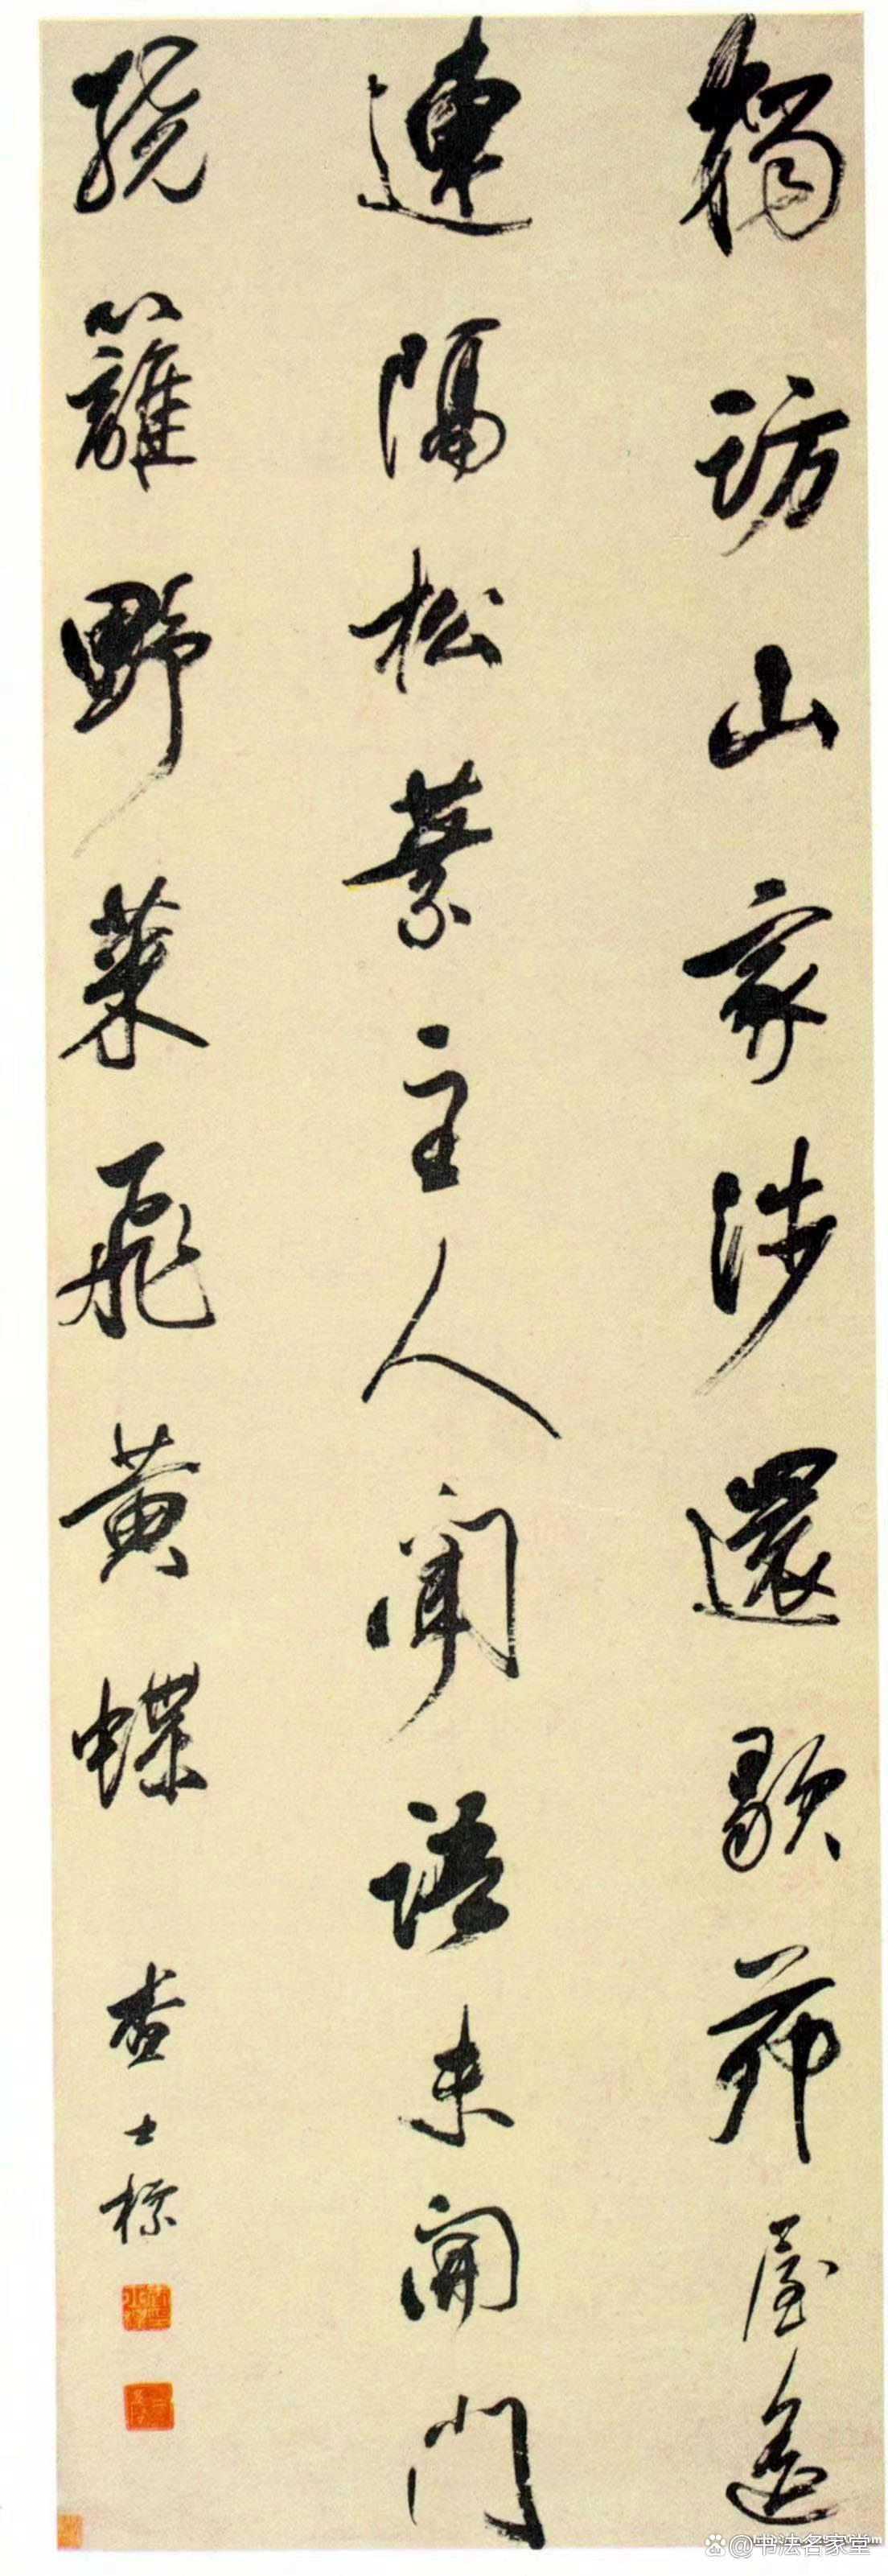 獨訪山家涉還歇茆屋遙
連隔松葉主人聞語未開門
繞籬野菜飛黃蝶
查士標
@书法名家堂